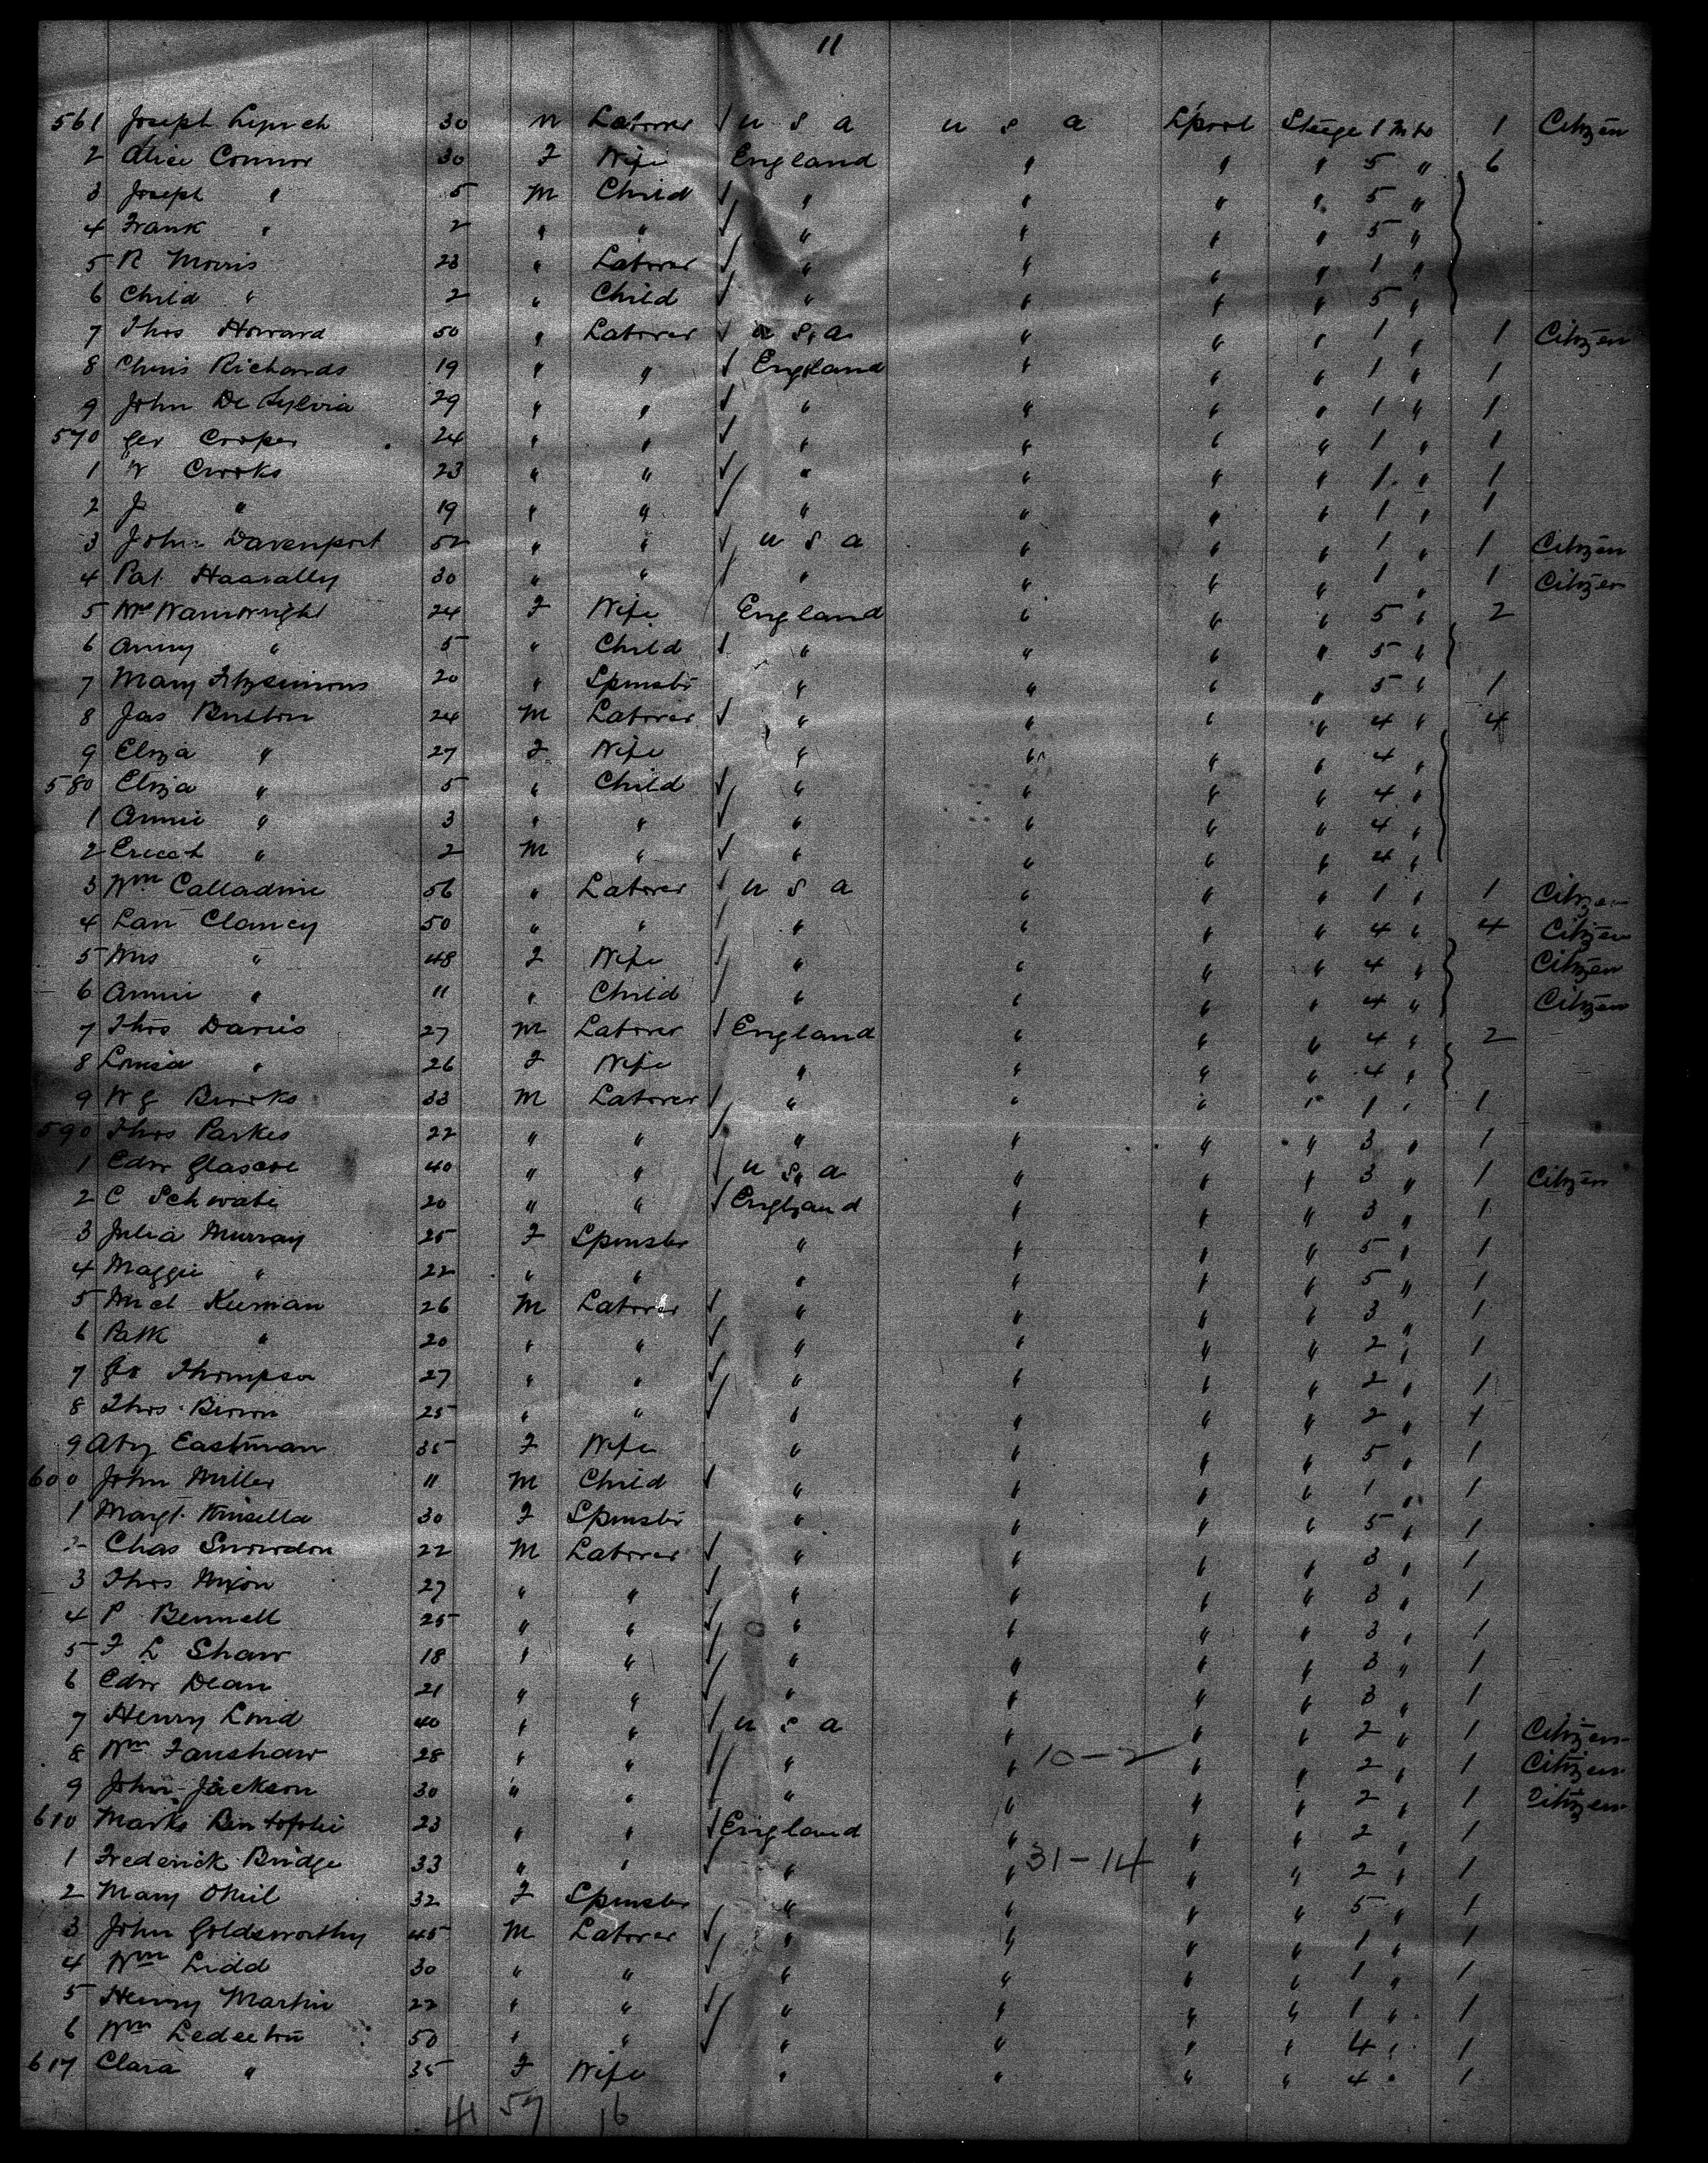 11
561 Joseph Lynch 30 m Laborer √ U S A U S A L'pool Steege 1 Mts 1 Citizen
2 Alice Connor 30 F Wife England " " " 5 " 6
3 Joseph " 5 M Child √ " " " " 5 "
4 Frank " 2 " " √ " " " " 5 "
5 R Morris 23 " Laborer √ " " " " 1 "
6 Child " 2 " Child √ " " " " 5 "
7 Thos Howard 50 " Laborer √ U S A " " " 1 " 1 Citizen
8 Chris Richards 19 " " √ England " " " 1 " 1
9 John De Sylvia 29 " " √ " " " " 1 " 1
570 Geo Cooper 24 " " √ " " " " 1 " 1
1 W Crooks 23 " " √ " " " " 1 " 1
2 J " 19 " " √ " " " " 1 " 1
3 John Davenport 52 " " √ U S A " " " 1 " 1 Citizen
4 Pat 30 " " / " " " " 1 " 1 Citizen
5 Mrs Wainwright 24 F Wife England " " " 5 " 2
6 Anny " 5 " Child √ " " " " 5 "
7 Mary Fitzsimons 20 " Spinster " " " " 5 " 1
8 Jas Button 24 M Laborer √ " " " " 4 " 4
9 Eliza " 27 F Wife " " " " 4 "
580 Eliza " 5 " Child √ " " " " 4 "
1 Annie " 3 " " √ " " " " 4 "
2 " 2 M " √ " " " " 4 "
3 Wm Calladine 56 " Laborer √ U S A " " " 1 " 1 Citizen
4 Lan Clancy 50 " " / " " " " 4 " 4 Citizen
5 Mrs " 48 F Wife / " " " " 4 " Citizen
6 Annie " 11 " Child / " " " " 4 " Citizen
7 Thos Davies 27 M Laborer √ England " " " 4 " 2
8 Louisa " 26 F Wife " " " " 4 "
9 W G Brooks 33 M Laborer √ " " " " 1 " 1
590 Thos Parkes 22 " " √ " " " " 3 " 1
1 Edw 40 " " √ U S A " " " 3 " 1 Citizen
2 C Schwabe 20 " " √ England " " " 3 " 1
3 Julia Murray 25 F Spinster " " " " 5 " 1
4 Maggie " 22 " " " " " " 5 " 1
5 Micl Kiernan 26 M Laborer √ " " " " 3 " 1
6 Patk " 20 " " √ " " " " 2 " 1
7 Geo Thompson 27 " " √ " " " " 2 " 1
8 Thos Brown 25 " " √ " " " " 2 " 1
9 Aby Eastman 35 F Wife " " " " 5 " 1
600 John Miller 11 M Child √ " " " " 1 " 1
1 Margt Kinsella 30 F Spinster " " " " 5 " 1
2 Chas Snowdon 22 M Laborer √ " " " " 3 " 1
3 Thos Nixon 27 " " √ " " " " 3 " 1
4 P Bennett 25 " " √ " " " " 3 " 1
5 F L Shaw 18 " " √ " " " " 3 " 1
6 Edw Dean 21 " " √ " " " " 3 " 1
7 Henry Lord 40 " " / U S A " " " 2 " 1 Citizen
8 Wm Fanshaw 28 " " √ " " 10-2 " " 2 " 1 Citizen
9 John Jackson 30 " " / " " " " 2 " 1 Citizen
610 Marks 23 " " √ England " " " 2 " 1
1 Frederick Bridge 33 " " √ " " 31-14 " " 2 " 1
2 Mary ONeil 32 F Spinster " " " " 5 " 1
3 John Goldsworthy 45 M Laborer √ " " " " 1 " 1
4 Wm Lidd 30 " " √ " " " " 1 " 1
5 Henry Martin 22 " " √ " " " " 1 " 1
6 Wm 50 " " √ " " " " 4 " 1
617 Clara " 35 F Wife " " " " 4 " 1
41 57 16